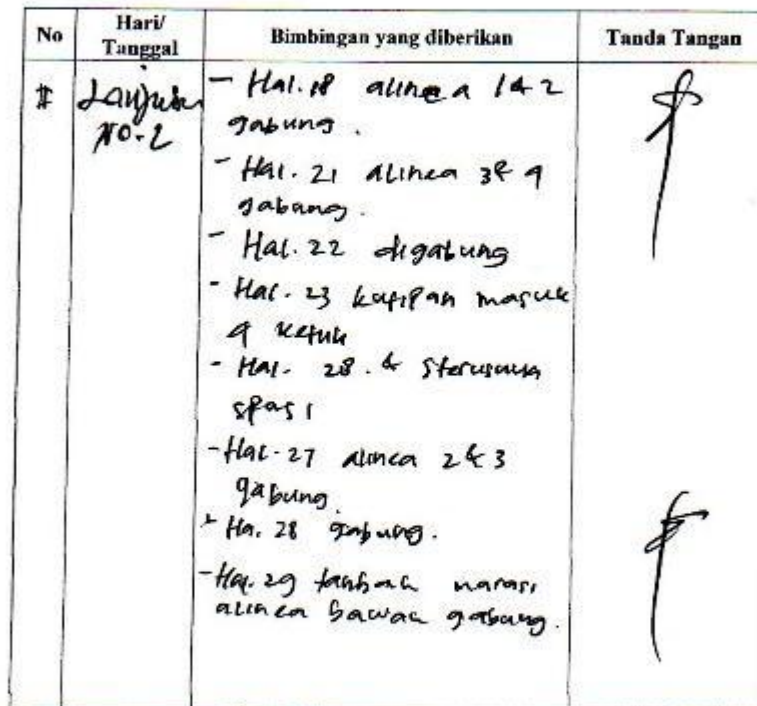 No Hari/ Tanggal Bimbingan yang diberikan Tanda Tangan
Lanjutan
NO-2
- Hal. 18 alinea 1 & 2
gabung.
- Hal. 21 alinea 3 & 4
gabung.
- Hal. 22 digabung
- Hal. 23 kutipan masuk
4 ketuk
- Hal. 28. & Sterusnya
spasi
- Hal. 27 alinea 2 & 3
gabung.
- Ha. 28 gabung.
- Hal. 29 tambah narasi
alinea bawah gabung.